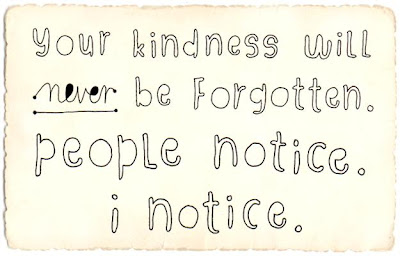 Your kindness will
never be Forgotten.
people notice.
i notice.